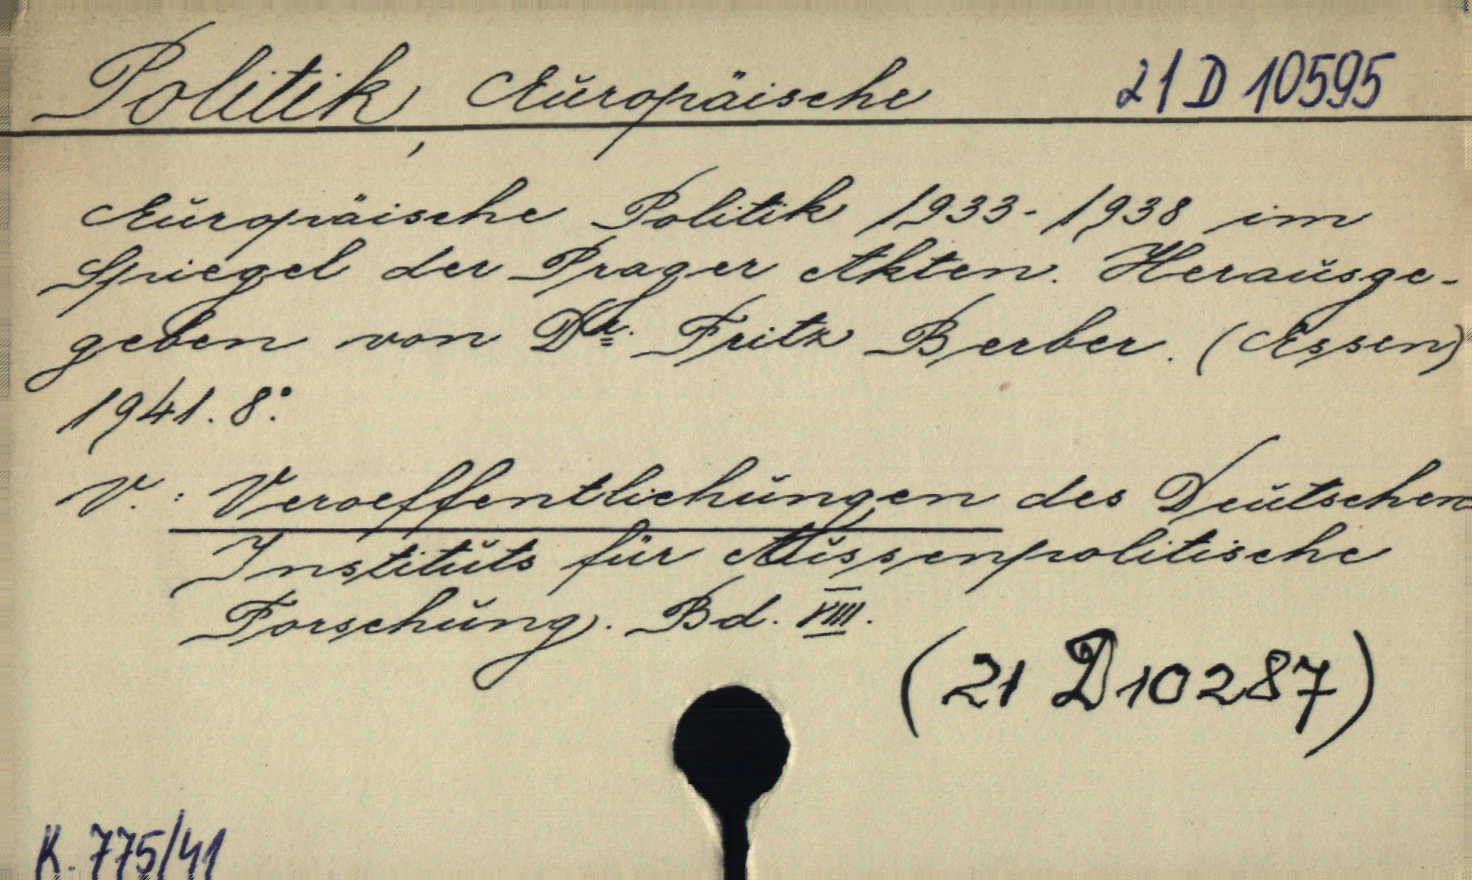 Politik, Europäische 21 D 10595
Europäische Politik 1933-1938 im
Spiegel der Prager Akten. Herausge-
geben von Dr. Fritz Berber. (Essen)
1941. 8°.
V.: Veroeffentlichungen des Deutschen
Instituts für Aussenpolitische
Forschung. Bd. VIII.
(21 D 10287)
K. 775/41